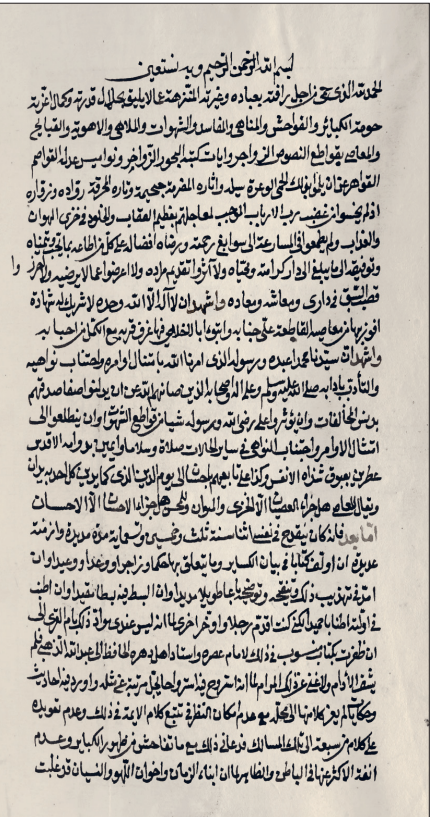 بسم الله الرحمن الرحيم وبه نستعين
الحمد لله الذي حمى من اجل رافته بعباده وغيرته المتنزهة عما لا يليق بكمال قدرته وكمال عزته
حومة الكبائر والفواحش والمناهي والمفاسد والشهوات والملاهي والاهوية والقبائح
والمعاصي بقواطع النصوص التي واجر وايات كتبه البحور الزواخر ونواميس عدله القواصم
القواهر عن ان يلموا بذلك الحمى الوعرة سبله واثاره المضرمة جحيمه وناره المحرقة رواده وزواره
اذ لم يخشوا غضب رب الارباب الموجب لمعاجلتهم بعظيم العقاب والخلود في خزي الهوان
والعذاب ولم يطمعوا في المسارعة الى سوابغ رحمته ورضاه افضاله على كل من اطاعه بما يحبه ويتمناه
وتوفيقه الى ما يبلغ الى دار كرامته ولا اثروا تقديم مراده ولا اعرضوا عما لا يرضيه
قصب السبق في داري ومعاشه ومعاده واشهد ان لا اله الا الله وحده لا شريك له شهادة
افوز بها من معاصيه القاطعة على جنابه وابتوا بالاخلاص فيها غرف قربه مع الكمل من احبابه
واشهد ان سيدنا محمدا عبده ورسوله الذي امرنا الله بامتثال اوامره واجتناب نواهيه
والتادب بادابه صلى الله عليه وسلم وعلى اله واصحابه الذين صانهم الله عن ان يدنسوا صفا صدقهم
بدنس المخالفات وان يؤثروا على رضى الله ورسوله شيا من قواطع الشهوات وان يتطلعوا الى
امتثال الاوامر واجتناب النواهي في سائر الحالات صلاة وسلاما
عطرين بعبوق شذاه الانفس وكذا على تابعيهم باحسان الى يوم الدين الذي كما يدين كل احد يدان
ويقال للعاصي هل جزاء العصيان الا الخزي والهوان وللمحسن هل جزاء الاحسان الا الاحسان
اما بعد فانه كان ينقدح في نفسي اثنا سنة ثلث وخمسين وتسعماية مدة مديدة وازمنة
عديدة ان اؤلف كتابا في بيان الكبائر وما يتعلق بها حكما وزاجرا ووعدا ووعيدا وان
امد في تهذيب ذلك وتنقيحه وتوضيحه باعا طويلا مديدا وان ابسط فيه بسطا مفيدا وان اطنب
في ادلته اطنابا حميدا لكني كنت اقدم رجلا واوخر اخرى لما انه ليس عندي مواد ذلك بام القرى الى
ان ظفرت بكتاب منسوب في ذلك لامام عصره واستاذ اهل دهره الحافظ ابي عبد الله الذهبي فلم
يشف الاوام ولا اغنى عن ذلك المرام لما انه استروح فيه استرواحا تجل مرتبته عن مثله واورد فيه احاديث
وحكايات لم يعز كلا منها الى محله مع عدم امعان النظر في تتبع كلام الايمة في ذلك وعدم تعويله
على كلام من سبقه الى تلك المسالك فدعاني ذلك مع ما تفاحش من ظهور الكبائر وعدم
انفة الاكثر عنها في الباطن والظاهر لما ان ابناء الزمان واخوان اللهو والنسيان قد غلبت